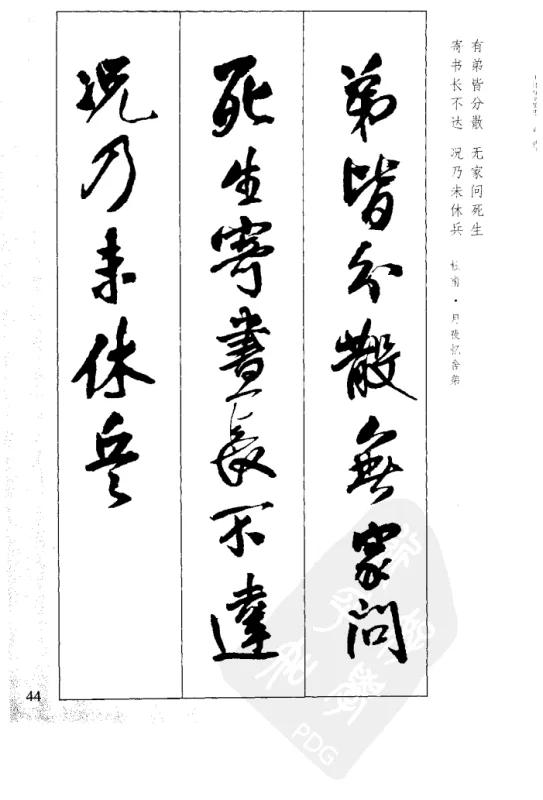 有弟皆分散 无家问死生
寄书长不达 况乃未休兵
杜甫·月夜忆舍弟
弟皆分散無家問
死生寄書長不達
况乃未休兵
44
PDG